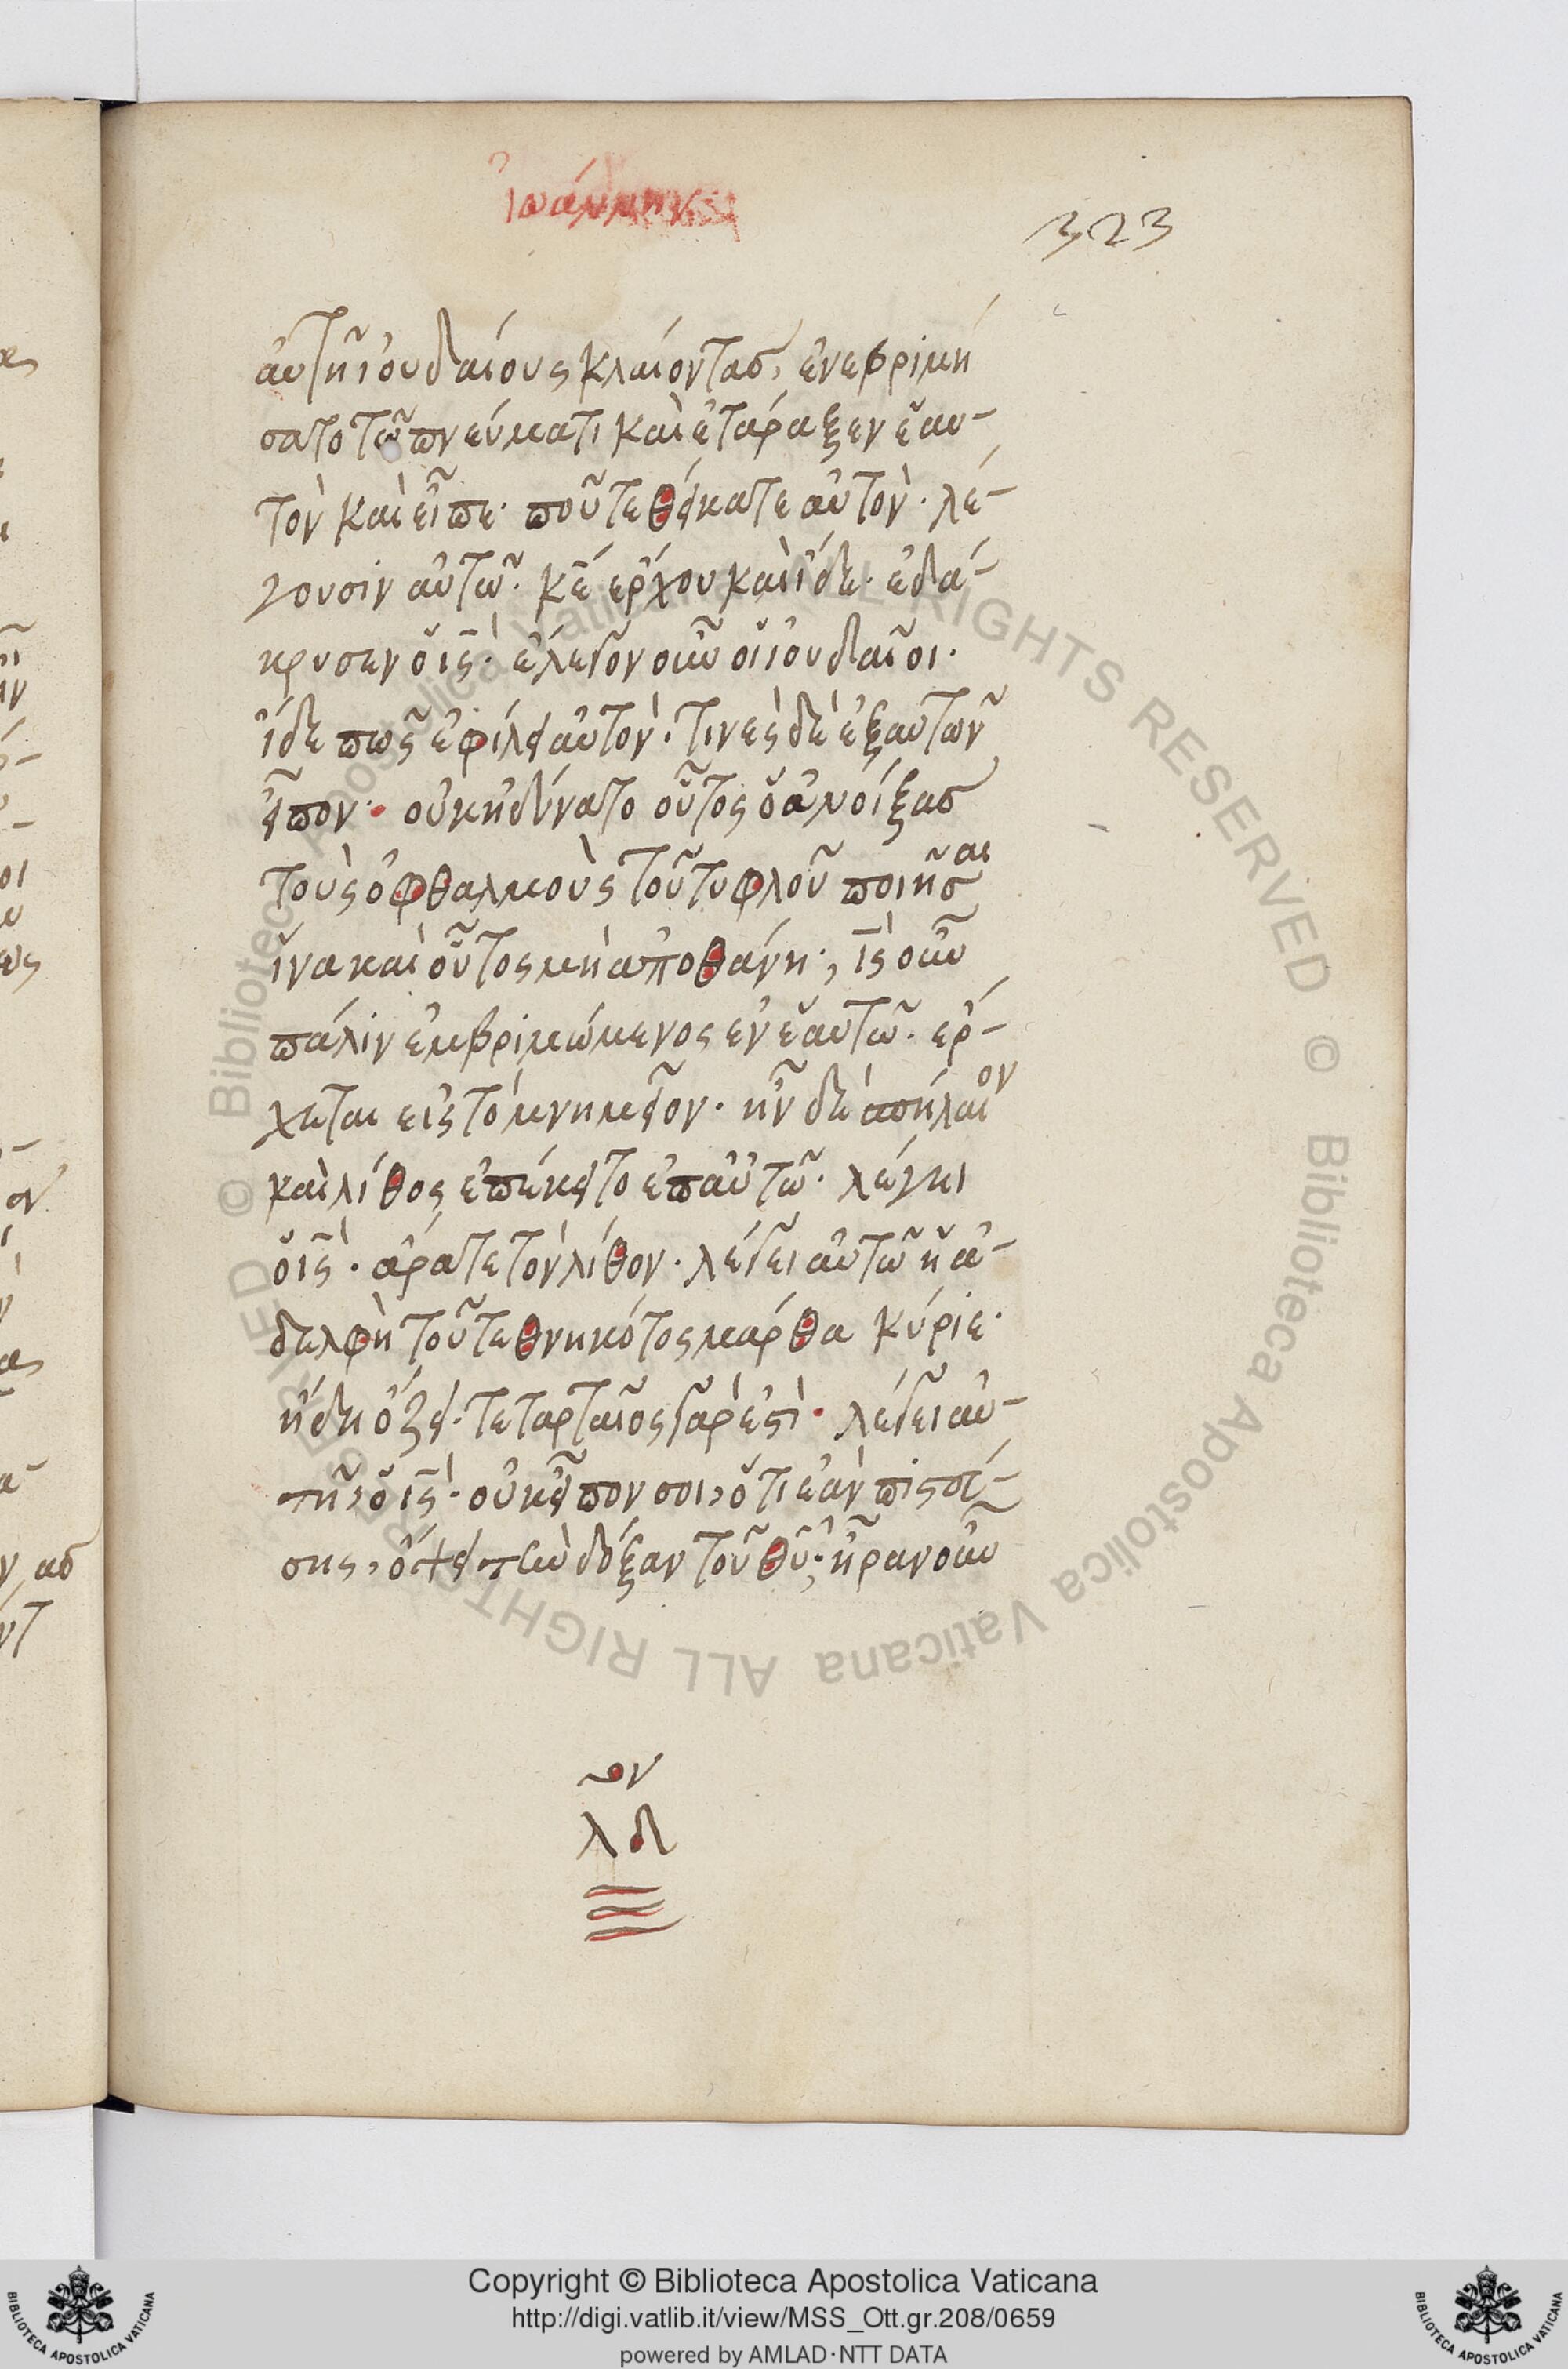 Ἰωάννην
323
αὐτῆ ἰουδαίους κλαίοντασ, ἐνεβριμή
σατο τῶ πνεύματι καὶ ἐτάραξεν ἑαυ-
τὸν καὶ εἶπε· ποῦ τεθήκατε αὐτὸν· λέ-
γουσιν αὐτῶ· κ̅ε ἔρχου καὶ ἴδε· ἐδά-
κρυσεν ὁ ι̅ς· ἔλεγον οὖν οἱ ἰουδαῖοι·
ἴδε πῶς ἐφίλει αὐτὸν· τινὲς δὲ ἐξ αὐτῶν
εἶπον· οὐκ ἠδύνατο οὗτος ὁ ἀνοίξασ
τοὺς ὀφθαλμοὺς τοῦ τυφλοῦ ποιῆσαι
ἵνα καὶ οὗτος μὴ ἀποθάνη·, ι̅ς οὖν
πάλιν ἐμβριμώμενος ἐν ἑαυτῶ· ἔρ-
χεται εἰς τὸ μνημεῖον· ἦν δὲ σπήλαιον
καὶ λίθος ἐπέκειτο ἐπ αὐτῶ· λέγει
ὁ ι̅ς· ἄρατε τὸν λίθον· λέγει αὐτῶ ἡ ἀ-
δελφὴ τοῦ τεθνηκότος μάρθα κύριε·
ἤδη ὄζει· τεταρταῖος γὰρ ἐστὶ· λέγει αὐ-
τῆ, ὁ ι̅ς· οὐκ εἶπον σοι, ὅτι ἐὰν πιστεύ-
σης, ὄψει τὴν δόξαν τοῦ θ̅υ·; ἦραν οὖν
ον
λδ
Copyright © Biblioteca Apostolica Vaticana
http://digi.vatlib.it/view/MSS_Ott.gr.208/0659
powered by AMLAD·NTT DATA